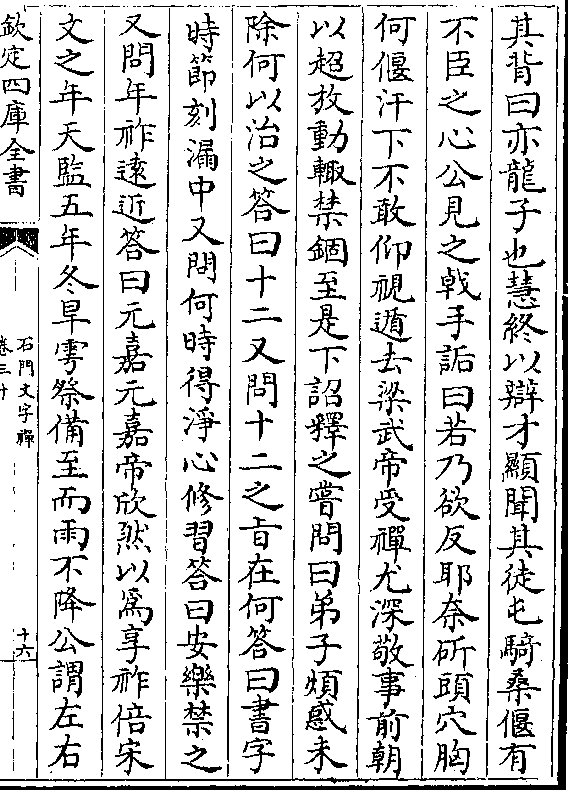 其背曰亦龍子也慧終以辯才顯聞其徒屯騎桑偃有
不臣之心公見之戟手詬曰若乃欲反耶奈斫頭穴胸
何偃汗下不敢仰視遁去梁武帝受禪尤深敬事前朝
以超放動輙禁錮至是下詔釋之嘗問曰弟子煩惑未
除何以治之答曰十二又問十二之旨在何答曰書字
時節刻漏中又問何時得淨心修習答曰安樂禁之
又問年祚逺近答曰元嘉元嘉帝欣然以爲享祚倍宋
文之年天監五年冬旱雩祭備至而雨不降公謂左右
欽定四庫全書
石門文字禪
卷三十
十六